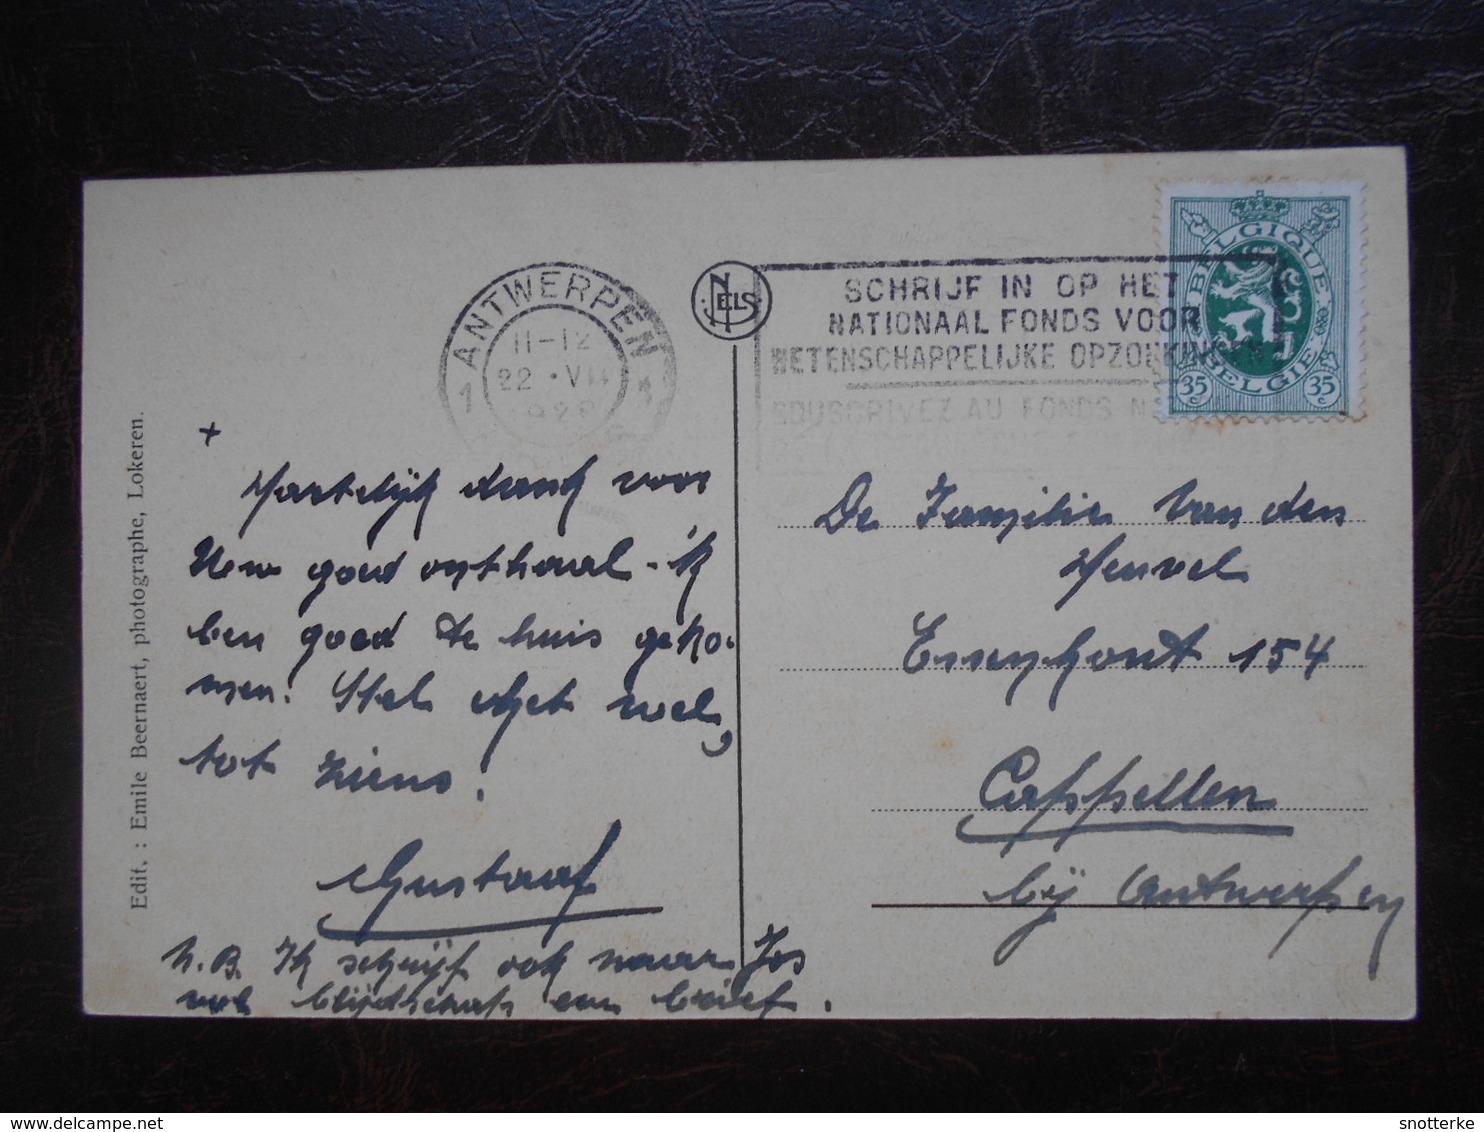 Edit. : Emile Beernaert, photographe, Lokeren.
1 ANTWERPEN
11-12
22 · VII
NELS
SCHRIJF IN OP HET
NATIONAAL FONDS VOOR
WETENSCHAPPELIJKE
SOUSCRIVEZ AU FONDS
BELGIQUE
BELGIË
35 c 35 c
+
Hartelijk dank voor
Uw goed onthaal. - 'k
ben goed te huis geko-
men. Stel het wel,
tot ziens!
Gustaaf
N.B. Ik schrijf ook naar Jos
vol blijdschap een brief.
De Familie Van den
Heuvel
Essenhout 154
Cappellen
bij Antwerpen
snotterke